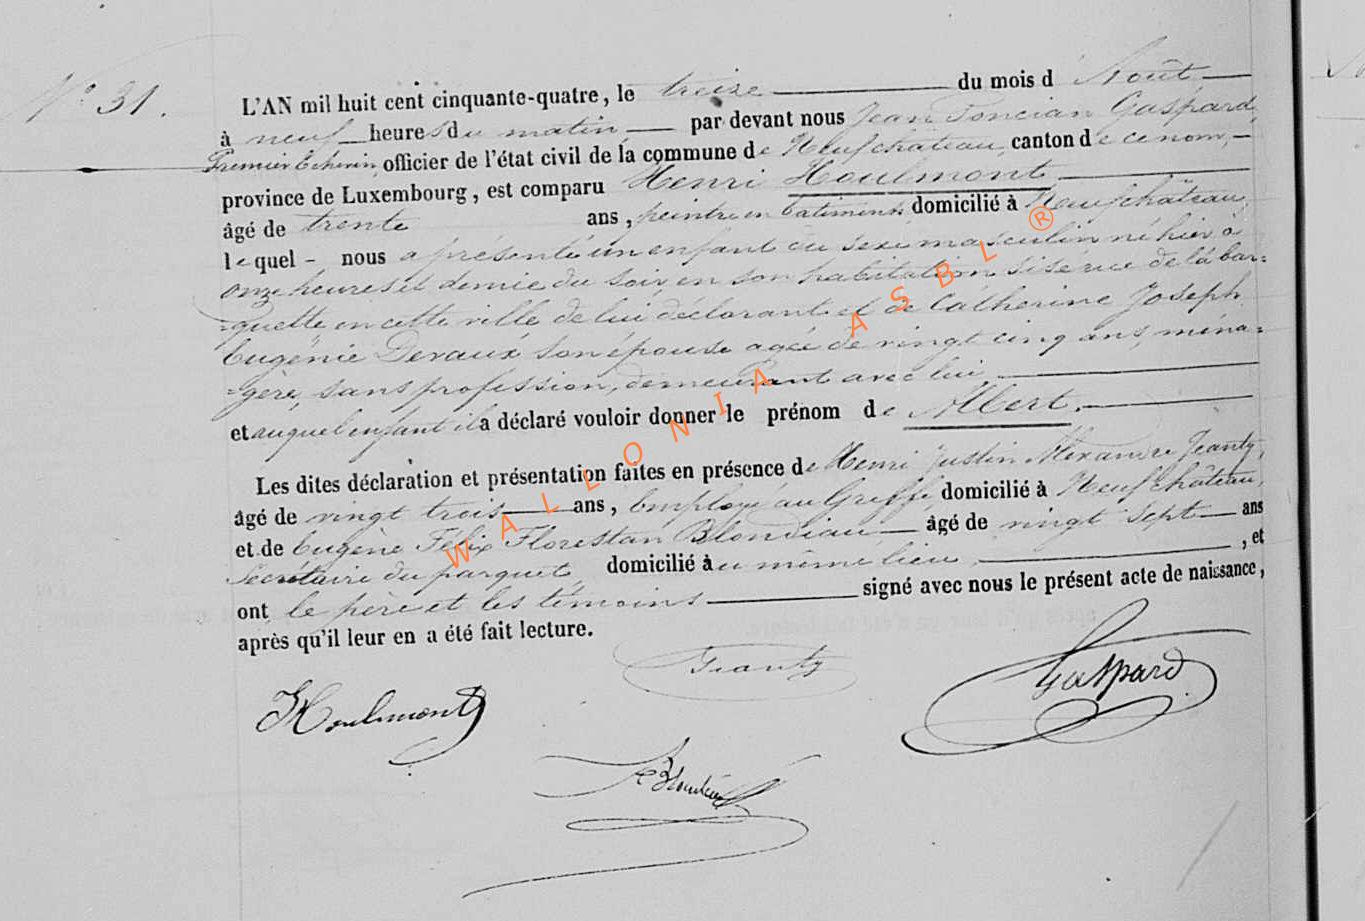 N° 31.
L'AN mil huit cent cinquante-quatre, le treize du mois d'Août
à neuf heures du matin, par devant nous Jean Poncian Gaspard,
Premier Echevin, officier de l'état civil de la commune de Neufchâteau, canton de ce nom,
province de Luxembourg, est comparu Henri Houlmont
âgé de trente ans, peintre en batiments domicilié à Neufchâteau,
lequel nous a présenté un enfant du sexe masculin né hier à
onze heures et demie du soir en son habitation sise rue de la bar=
=quette en cette ville de lui déclarant et de Catherine Joseph
Eugénie Devaux son épouse agée de vingt cinq ans, ména=
=gère, sans profession, demeurant avec lui
et auquel enfant il a déclaré vouloir donner le prénom de Albert.
Les dites déclaration et présentation faites en présence de Henri Justin Alexandre Jeanty,
âgé de vingt trois ans, Employé au Greffe, domicilié à Neufchâteau,
et de Eugène Félix Florestan Blondiau âgé de vingt sept ans
Secrétaire du parquet, domicilié au même lieu, , et
ont le père et les témoins signé avec nous le présent acte de naissance,
après qu'il leur en a été fait lecture.
Jeanty
Gaspard
HHoulmont
Blondiau
WALLONIA ASBL ®